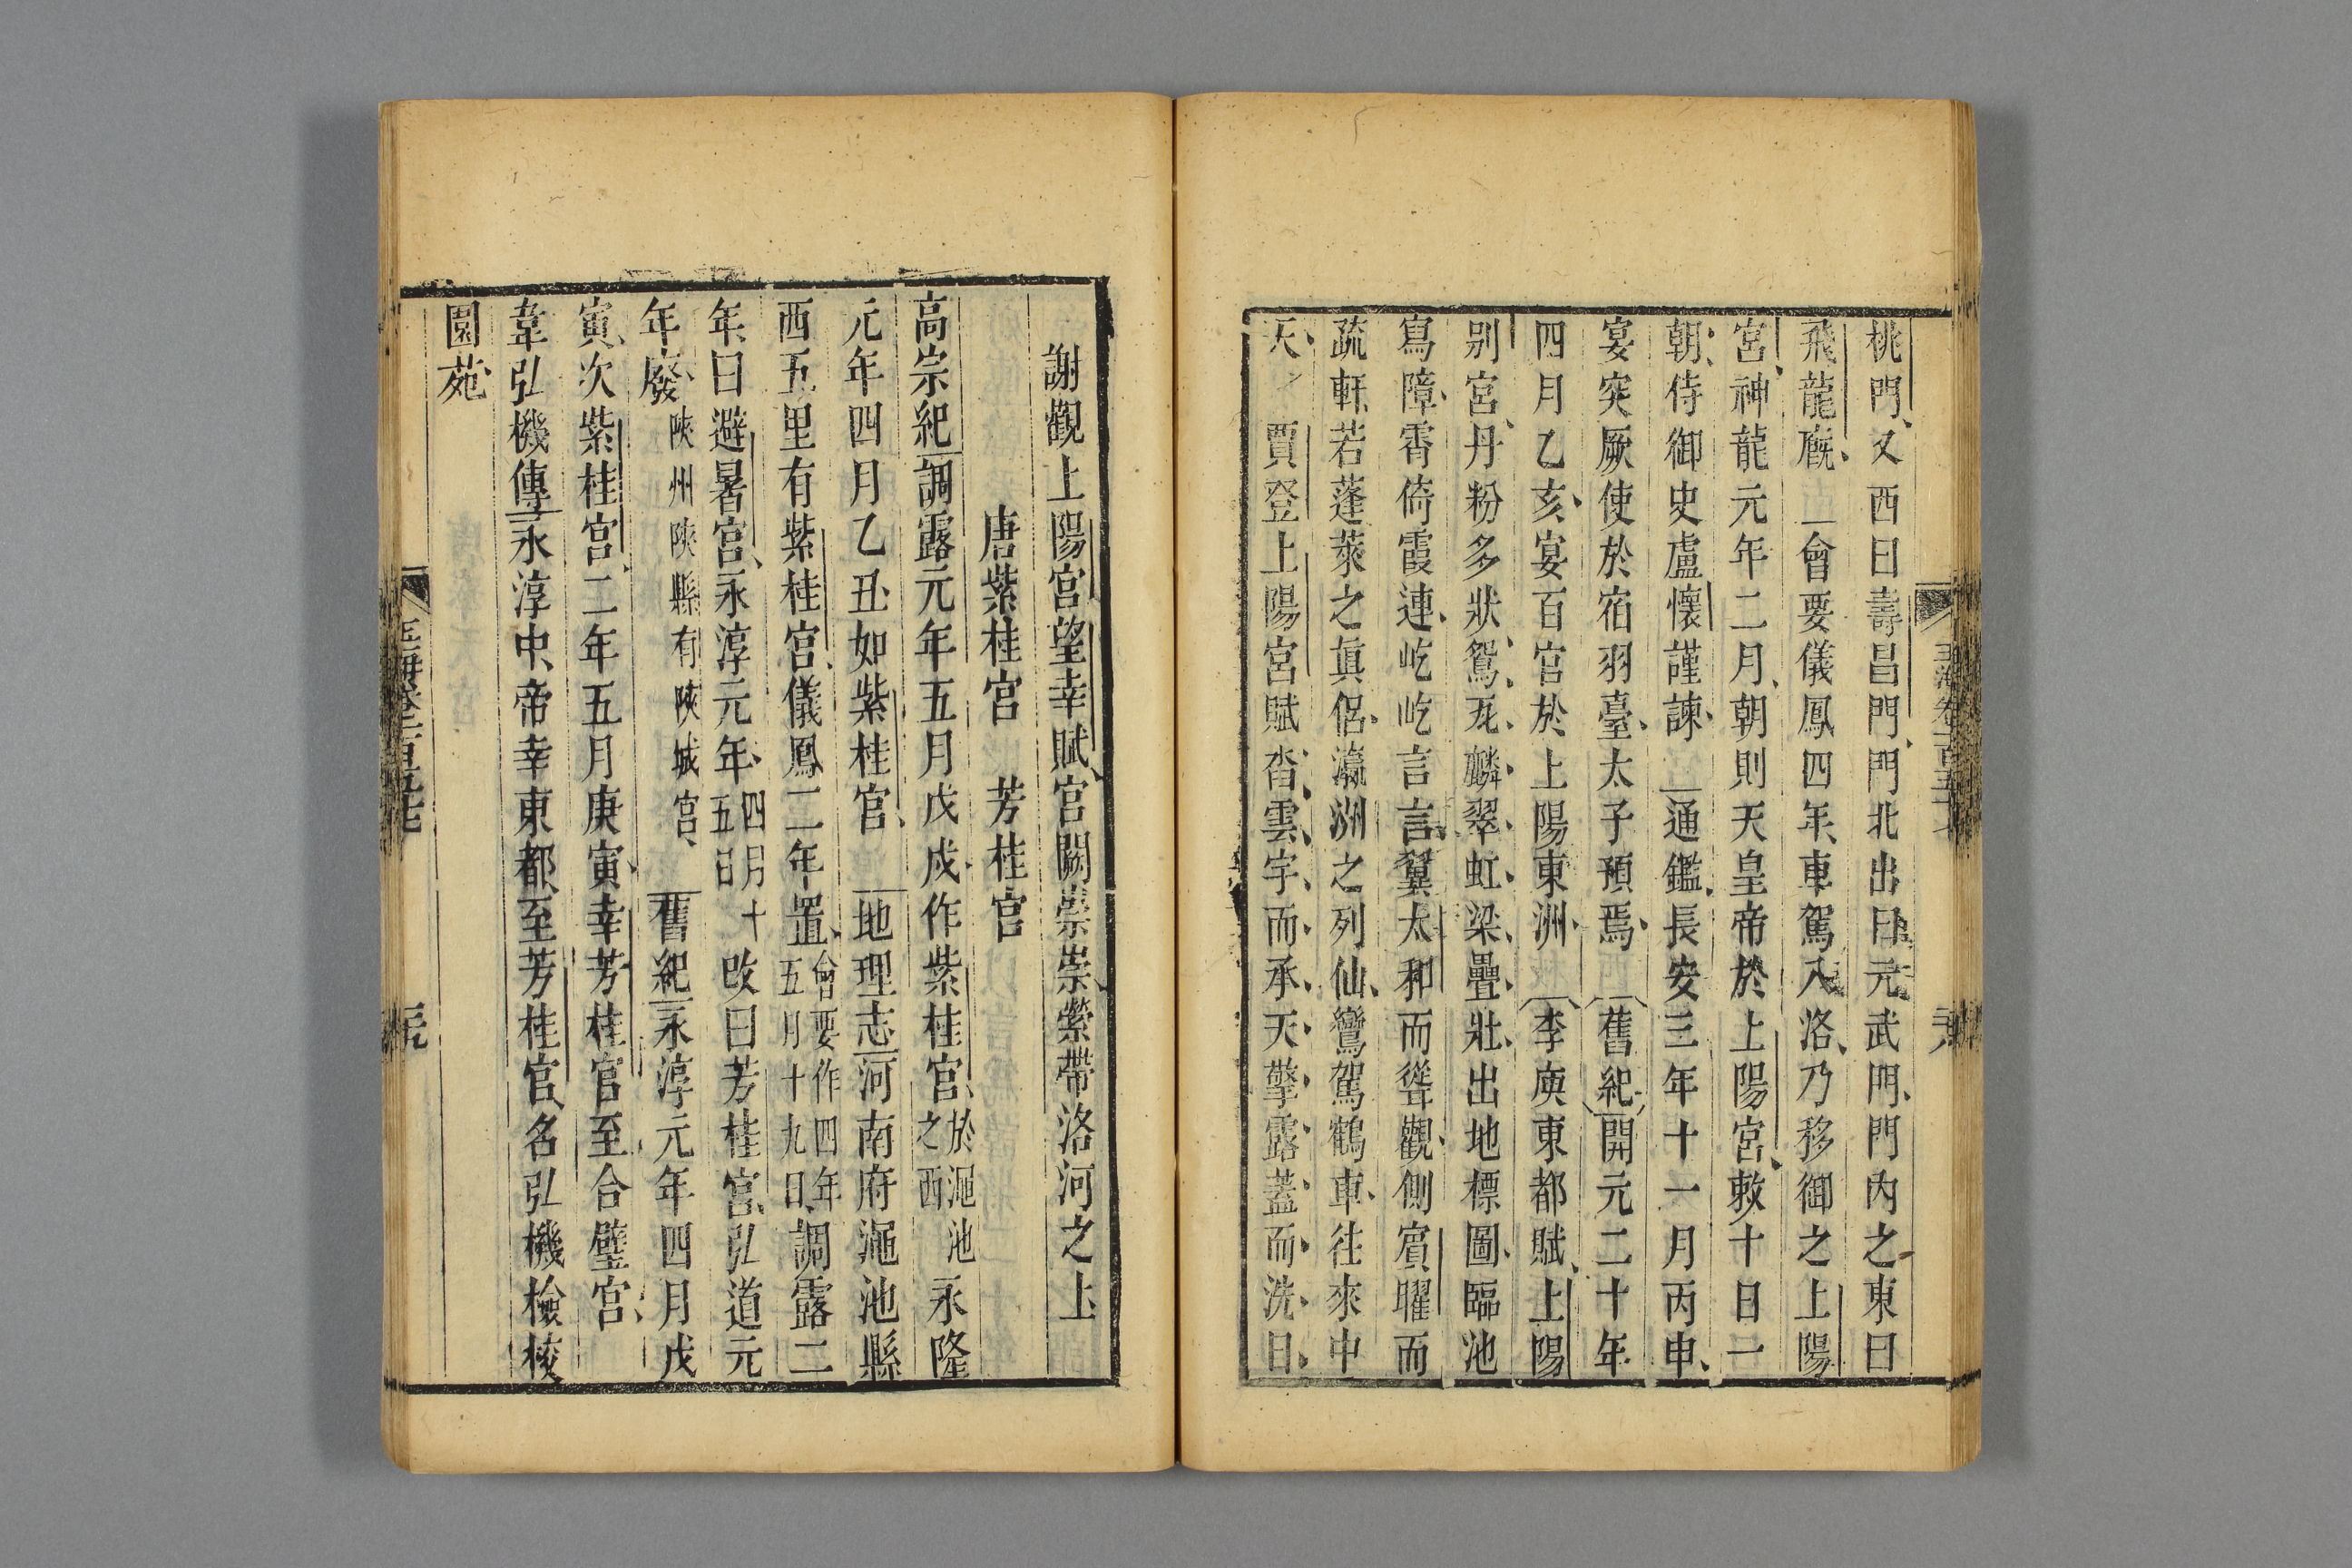 桃門又西曰壽昌門門北出曰元武門門內之東曰
飛龍廐會要儀鳳四年車駕入洛乃移御之上陽
宮神龍元年二月朝則天皇帝於上陽宮敕十日一
朝侍御史盧懷謹諫通鑑長安三年十一月丙申
宴突厥使於宿羽臺太子預焉舊紀開元二十年
四月乙亥宴百官於上陽東洲李庾東都賦上陽
別宮丹粉多狀鴛瓦鱗翠虹梁疊壯出地標圖臨池
寫障霄倚霞連屹屹言言翼太和而聳觀側賓曜而
疏軒若蓬萊之眞侶瀛洲之列仙鸞駕鶴車往來中
天 賈登上陽宮賦沓雲宇而承天擎露蓋而洗日
玉海卷一百五十七
謝觀上陽宮望幸賦宮闕崇崇縈帶洛河之上
唐紫桂宮 芳桂宮
高宗紀調露元年五月戊戌作紫桂宮於澠池之西永隆
元年四月乙丑如紫桂宮地理志河南府澠池縣
西五里有紫桂宮儀鳳二年置會要作四年五月十九日調露二
年曰避暑宮永淳元年四月十五日改曰芳桂宮弘道元
年廢陝州陝縣有陝城宮舊紀永淳元年四月戊
寅次紫桂宮二年五月庚寅幸芳桂宮至合璧宮
韋弘機傳永淳中帝幸東都至芳桂宮名弘機檢校
園苑
玉海卷一百五十七